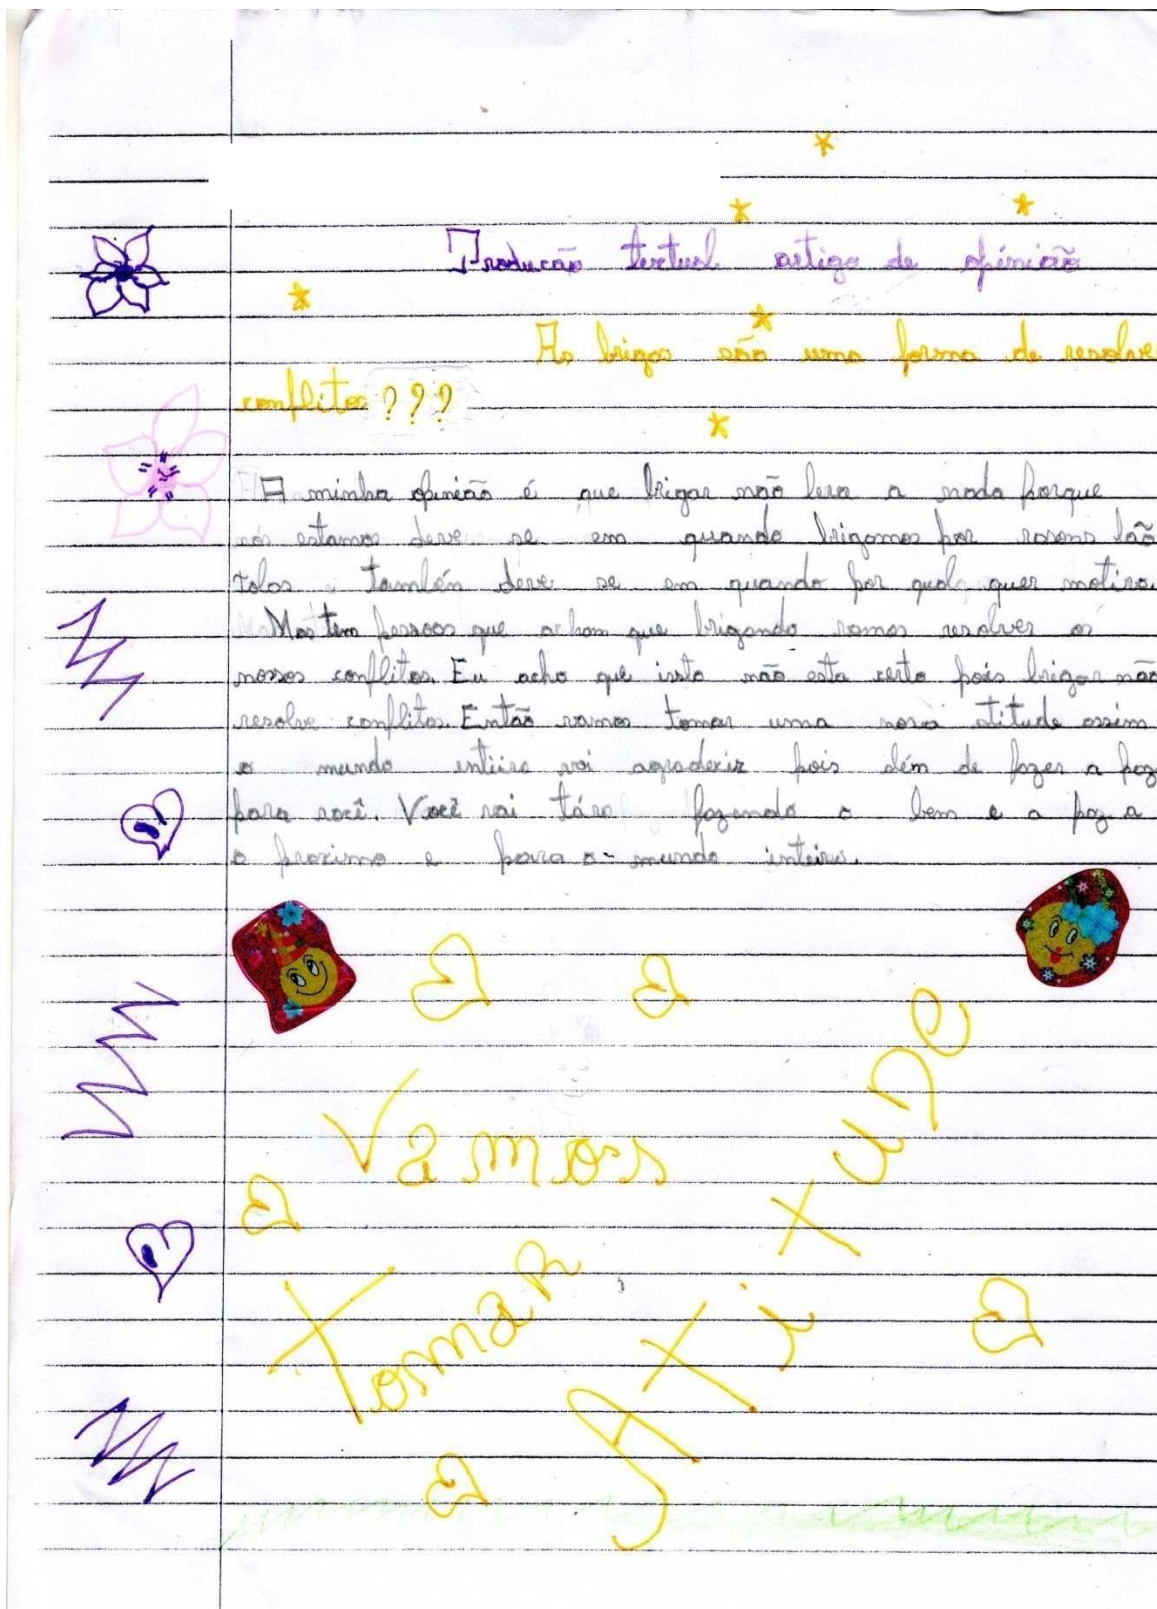 Producão textual artigo de opinião
As brigas são uma forma de resolve
conflitos???
A minha opinião é que brigar não leva a nada porque
nós estamos deve se em quando brigamos por rasons tão
tolos também deve se em quando por qual quer motivo.
Mas tem pessoas que acham que brigando vamos resolver os
nossos conflitos. Eu acho que isto não esta certo pois brigar não
resolve conflitos. Então vamos tomar uma nova atitude assim
o mundo entiiro vai agradecer pois além de fazer a paz
para você. Você vai tára fazendo o bem e a paz a
o proximo e para o mundo inteiro.
Vamos
Tomar
Atitude